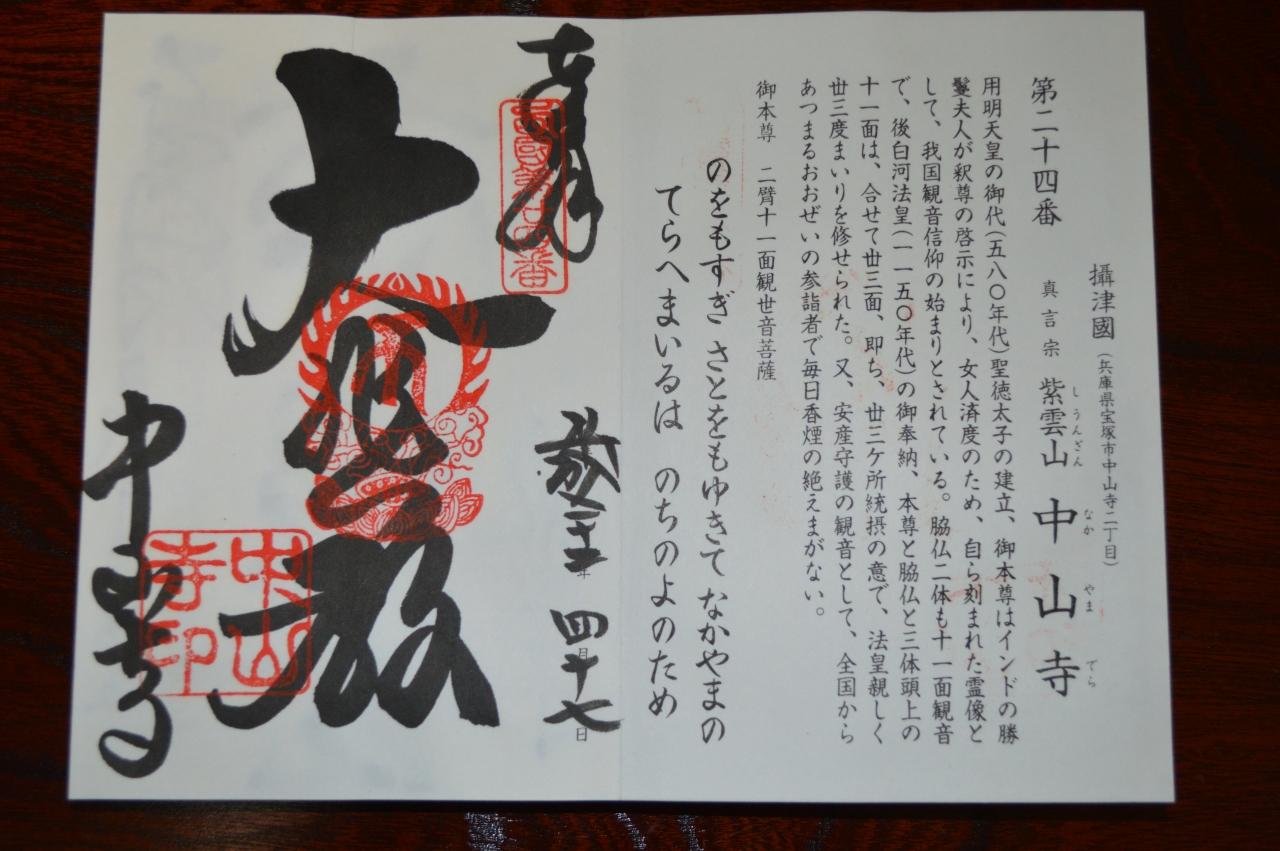 攝津國（兵庫県宝塚市中山寺二丁目）
第二十四番　真言宗　紫雲山　中山寺
しうんざん　なかやまでら
用明天皇の御代（五八〇年代）聖徳太子の建立、御本尊はインドの勝
鬘夫人が釈尊の啓示により、女人済度のため、自ら刻まれた霊像と
して、我国観音信仰の始まりとされている。脇仏二体も十一面観音
で、後白河法皇（一一五〇年代）の御奉納、本尊と脇仏と三体頭上の
十一面は、合せて丗三面、即ち、丗三ケ所統摂の意で、法皇親しく
丗三度まいりを修せられた。又、安産守護の観音として、全国から
あつまるおおぜいの参詣者で毎日香煙の絶えまがない。
御本尊　二臂十一面観世音菩薩
のをもすぎ さとをもゆきて なかやまの
てらへまいるは　のちのよのため
奉拝
西國第廿四番
年 四月十七日
大悲殿
中山寺
中山寺印